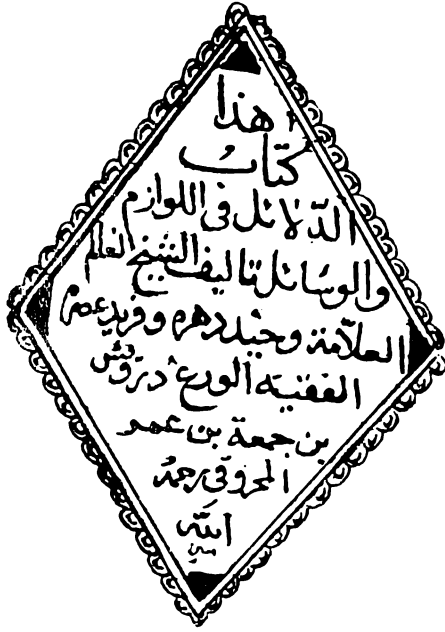 هذا
كتاب
الدلائل في اللوازم
والوسائل تاليف الشيخ العالم
العلامة وحيد دهره وفريد عصره
الفقيه الورع درويش
بن جمعة بن عمر
المحروقي رحمه
الله